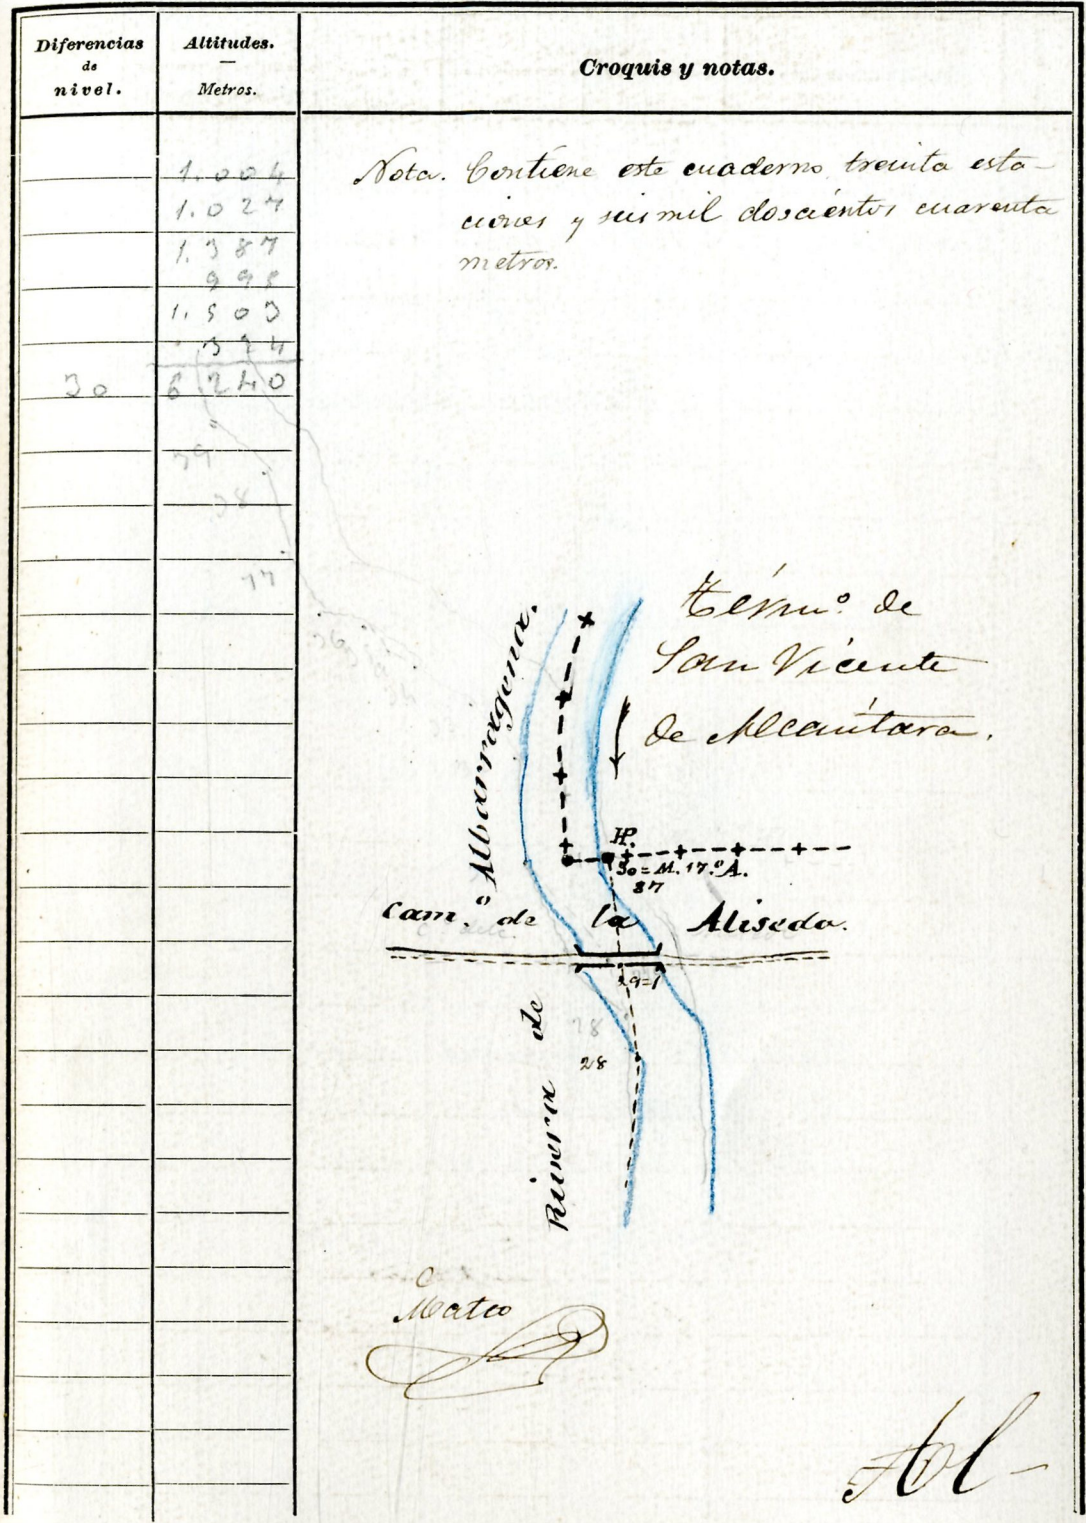 Diferencias
de
nivel.
Altitudes.
Metros.
Croquis y notas.
1.004
1.027
1.387
998
1.503
324
30 6 240
39
38
37
36
Nota. Contiene este cuaderno treinta esta-
ciones y seis mil doscientos cuarenta
metros.
Térmº. de
San Vicente
de Alcántara.
Rivera de Albarragena.
HP.
30=M.17.º A.
87
Cam.º de la Aliseda.
29=1
28
28
Mateo